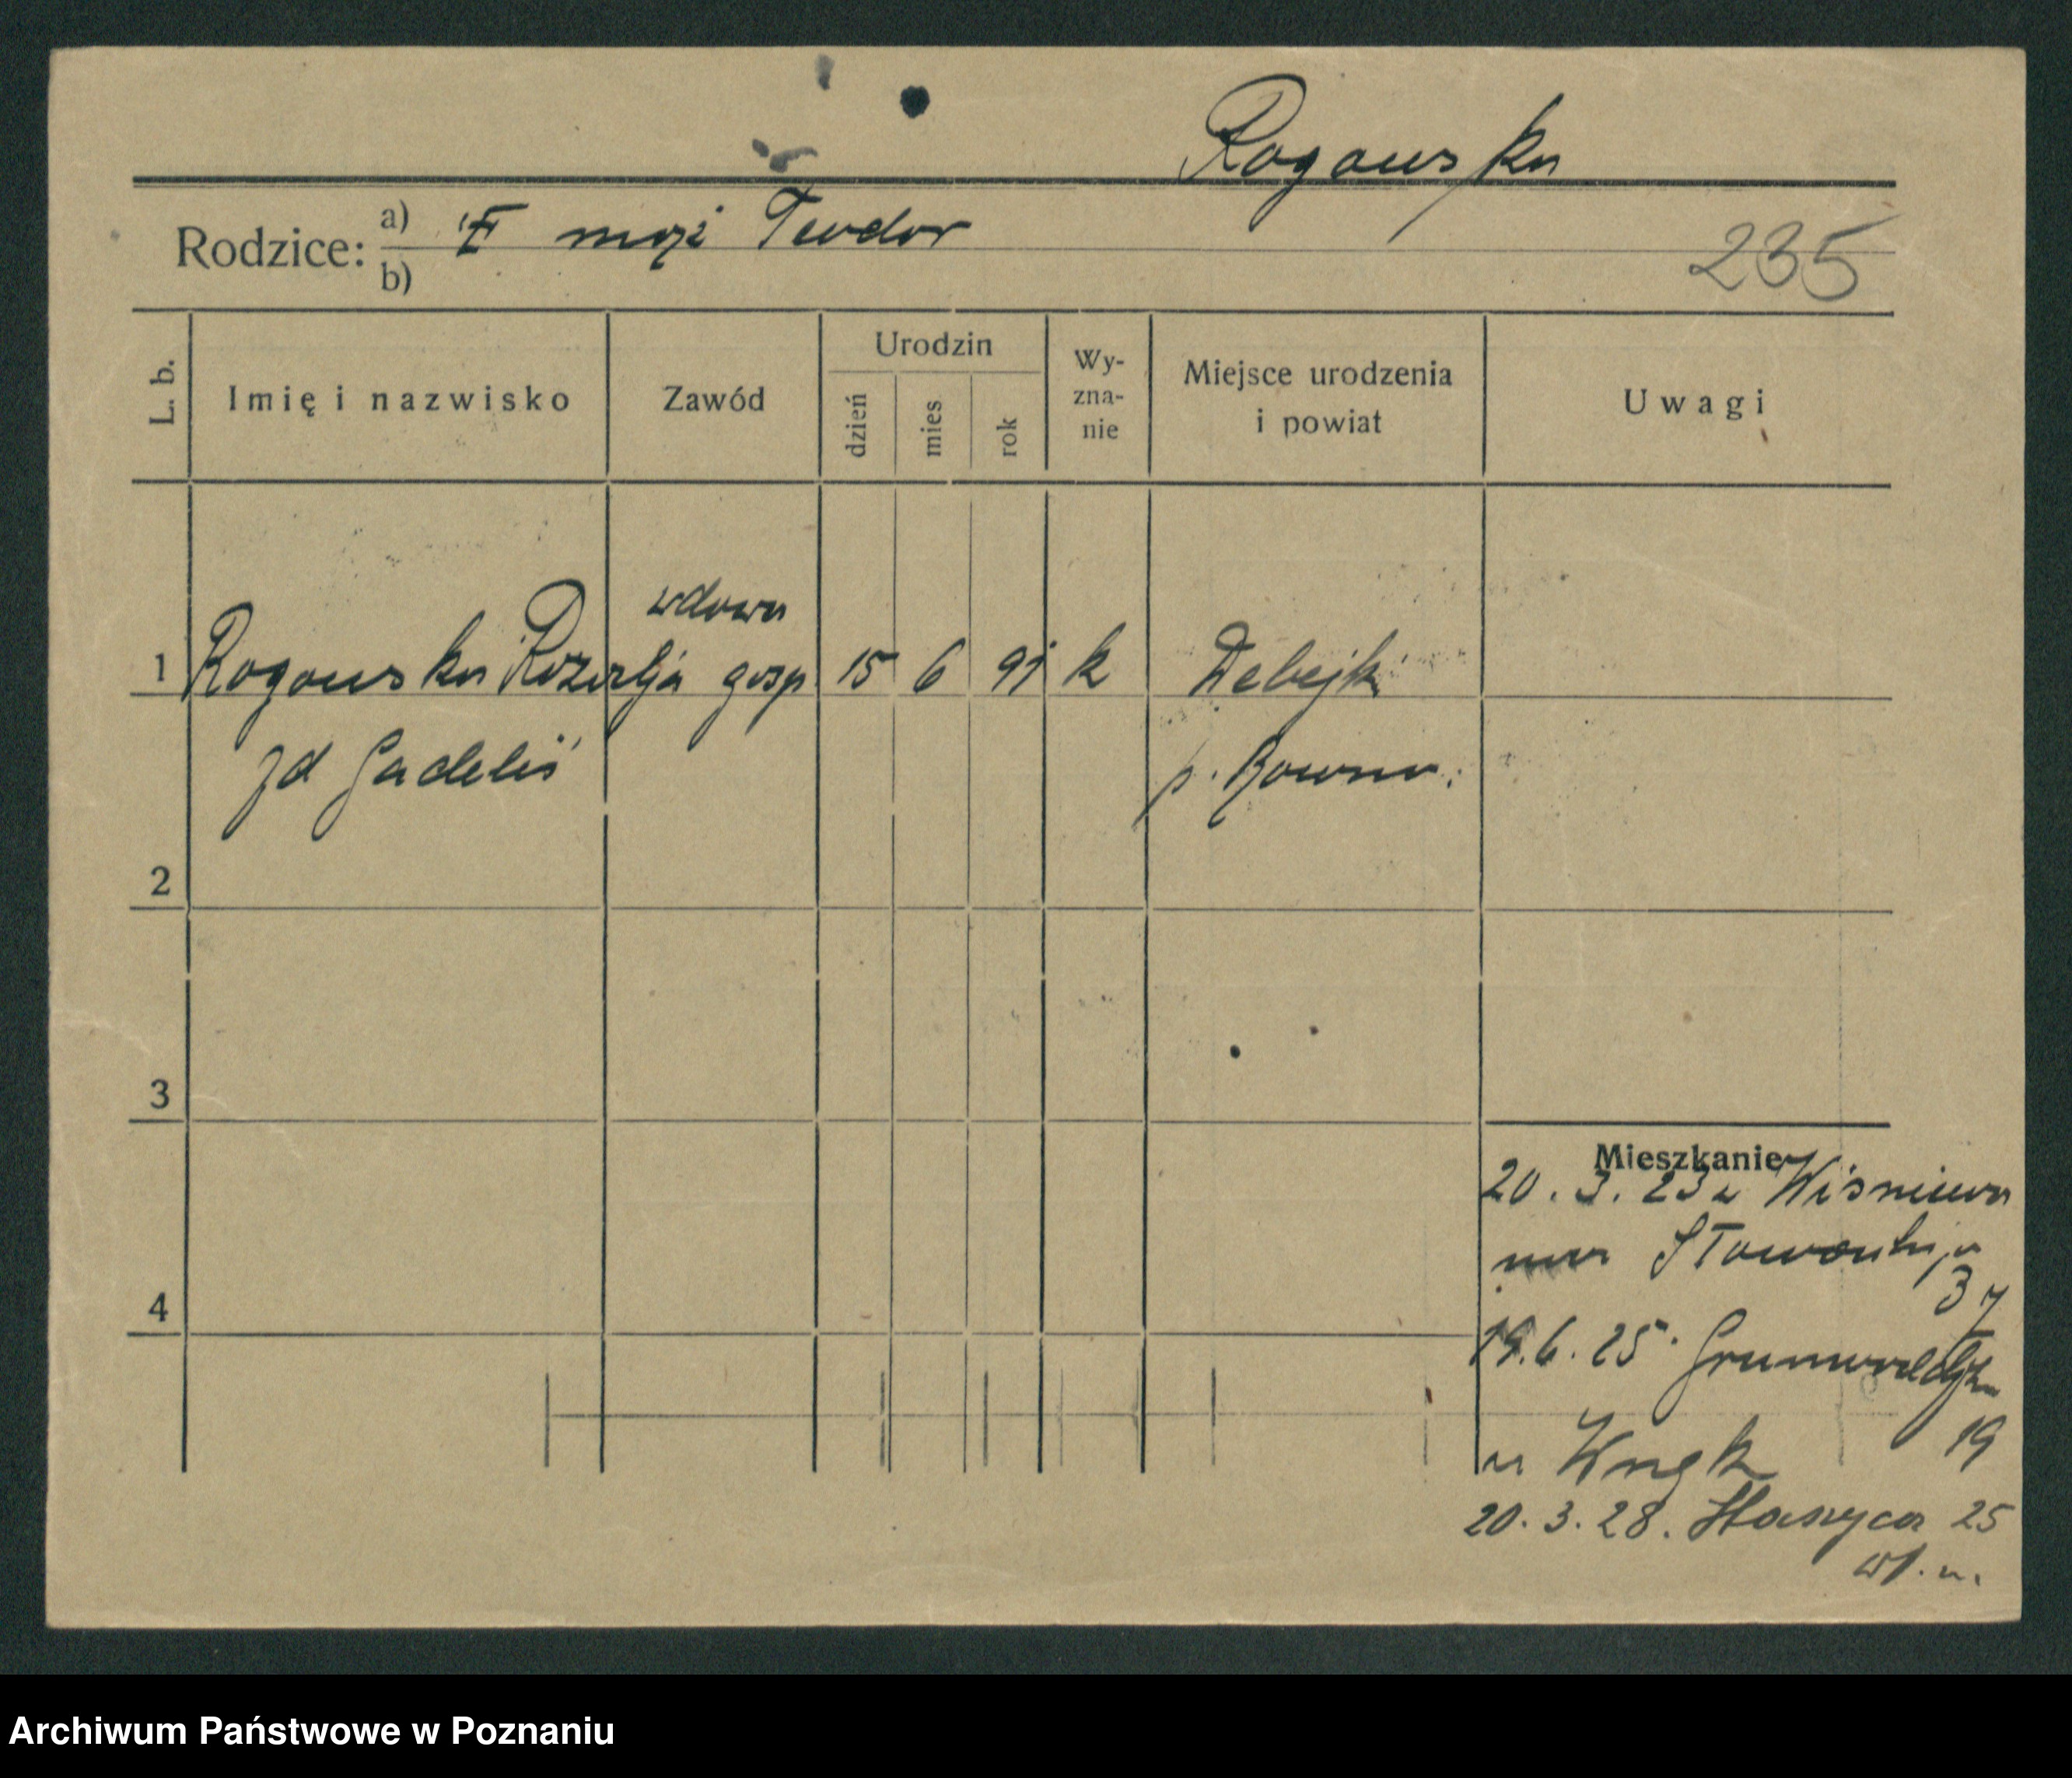 Rogowska
Rodzice: a) mąż Teodor
b)
235
L. b. Imię i nazwisko Zawód Urodzin dzień mies rok Wy-zna-nie Miejsce urodzenia i powiat Uwagi
wdowa
1 Rogowska Rozalja gosp 15 6 91 k Debejki
zd Gadeliś p. Rowno.
2
3
Mieszkanie
20. 3. 23 z Wiśniewa
Słowackiego
37
4
19. 6. 25. Grunwaldzka
19
u
20. 3. 28. Staszyca 25
Archiwum Państwowe w Poznaniu